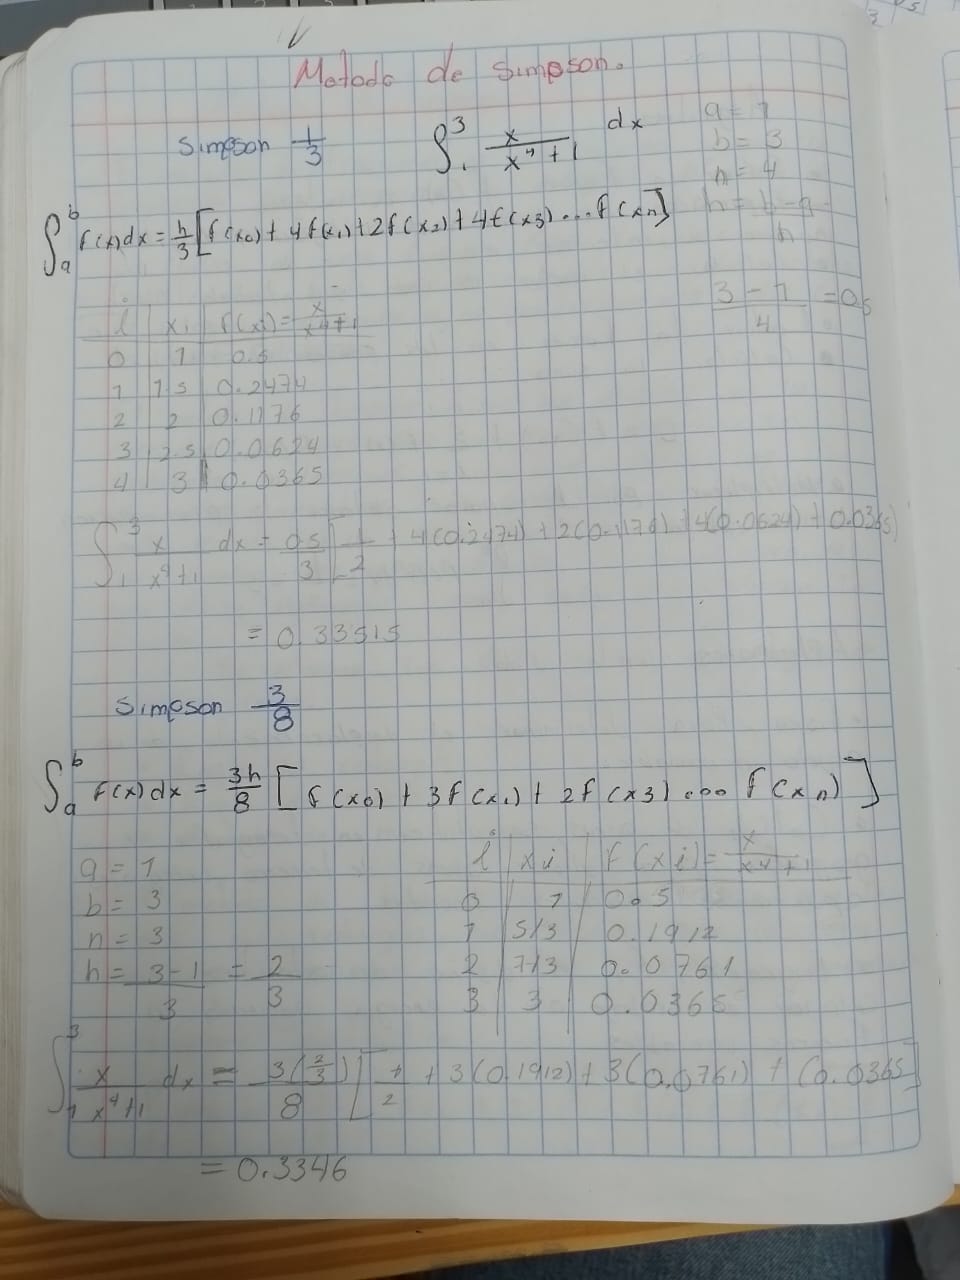 Metodo de simpson.
Simpson 1/3 ∫₁³ x/(x⁴+1) dx
a = 1
b = 3
n = 4
h = b-a/n
∫ₐᵇ f(x)dx = h/3 [f(x₀) + 4f(x₁) + 2f(x₂) + 4f(x₃) ... f(xn)]
3-1/4 = 0.5
i | xi | f(xi) = x/(x⁴+1)
0 | 1 | 0.5
1 | 1.5 | 0.2474
2 | 2 | 0.1176
3 | 2.5 | 0.0624
4 | 3 | 0.0365
∫₁³ x/(x⁴+1) dx = 0.5/3 [1/2 + 4(0.2474) + 2(0.1176) + 4(0.0624) + 0.0365)
= 0.33515
Simpson 3/8
∫ₐᵇ f(x) dx = 3h/8 [f(x₀) + 3f(x₁) + 2f(x3) ... f(xn)]
a = 1
b = 3
n = 3
h = 3-1/3 = 2/3
i | xi | f(xi) = x/(x⁴+1)
0 | 1 | 0.5
1 | 5/3 | 0.1912
2 | 7/3 | 0.0761
3 | 3 | 0.0365
∫₁³ x/(x⁴+1) dx = 3(2/3)/8 [1/2 + 3(0.1912) + 3(0.0761) + (0.0365]
= 0.3346